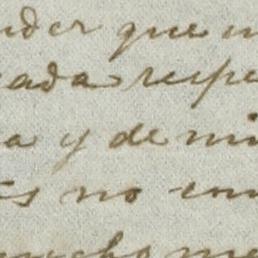 nder que u
cada respe
a y de mi
es no con